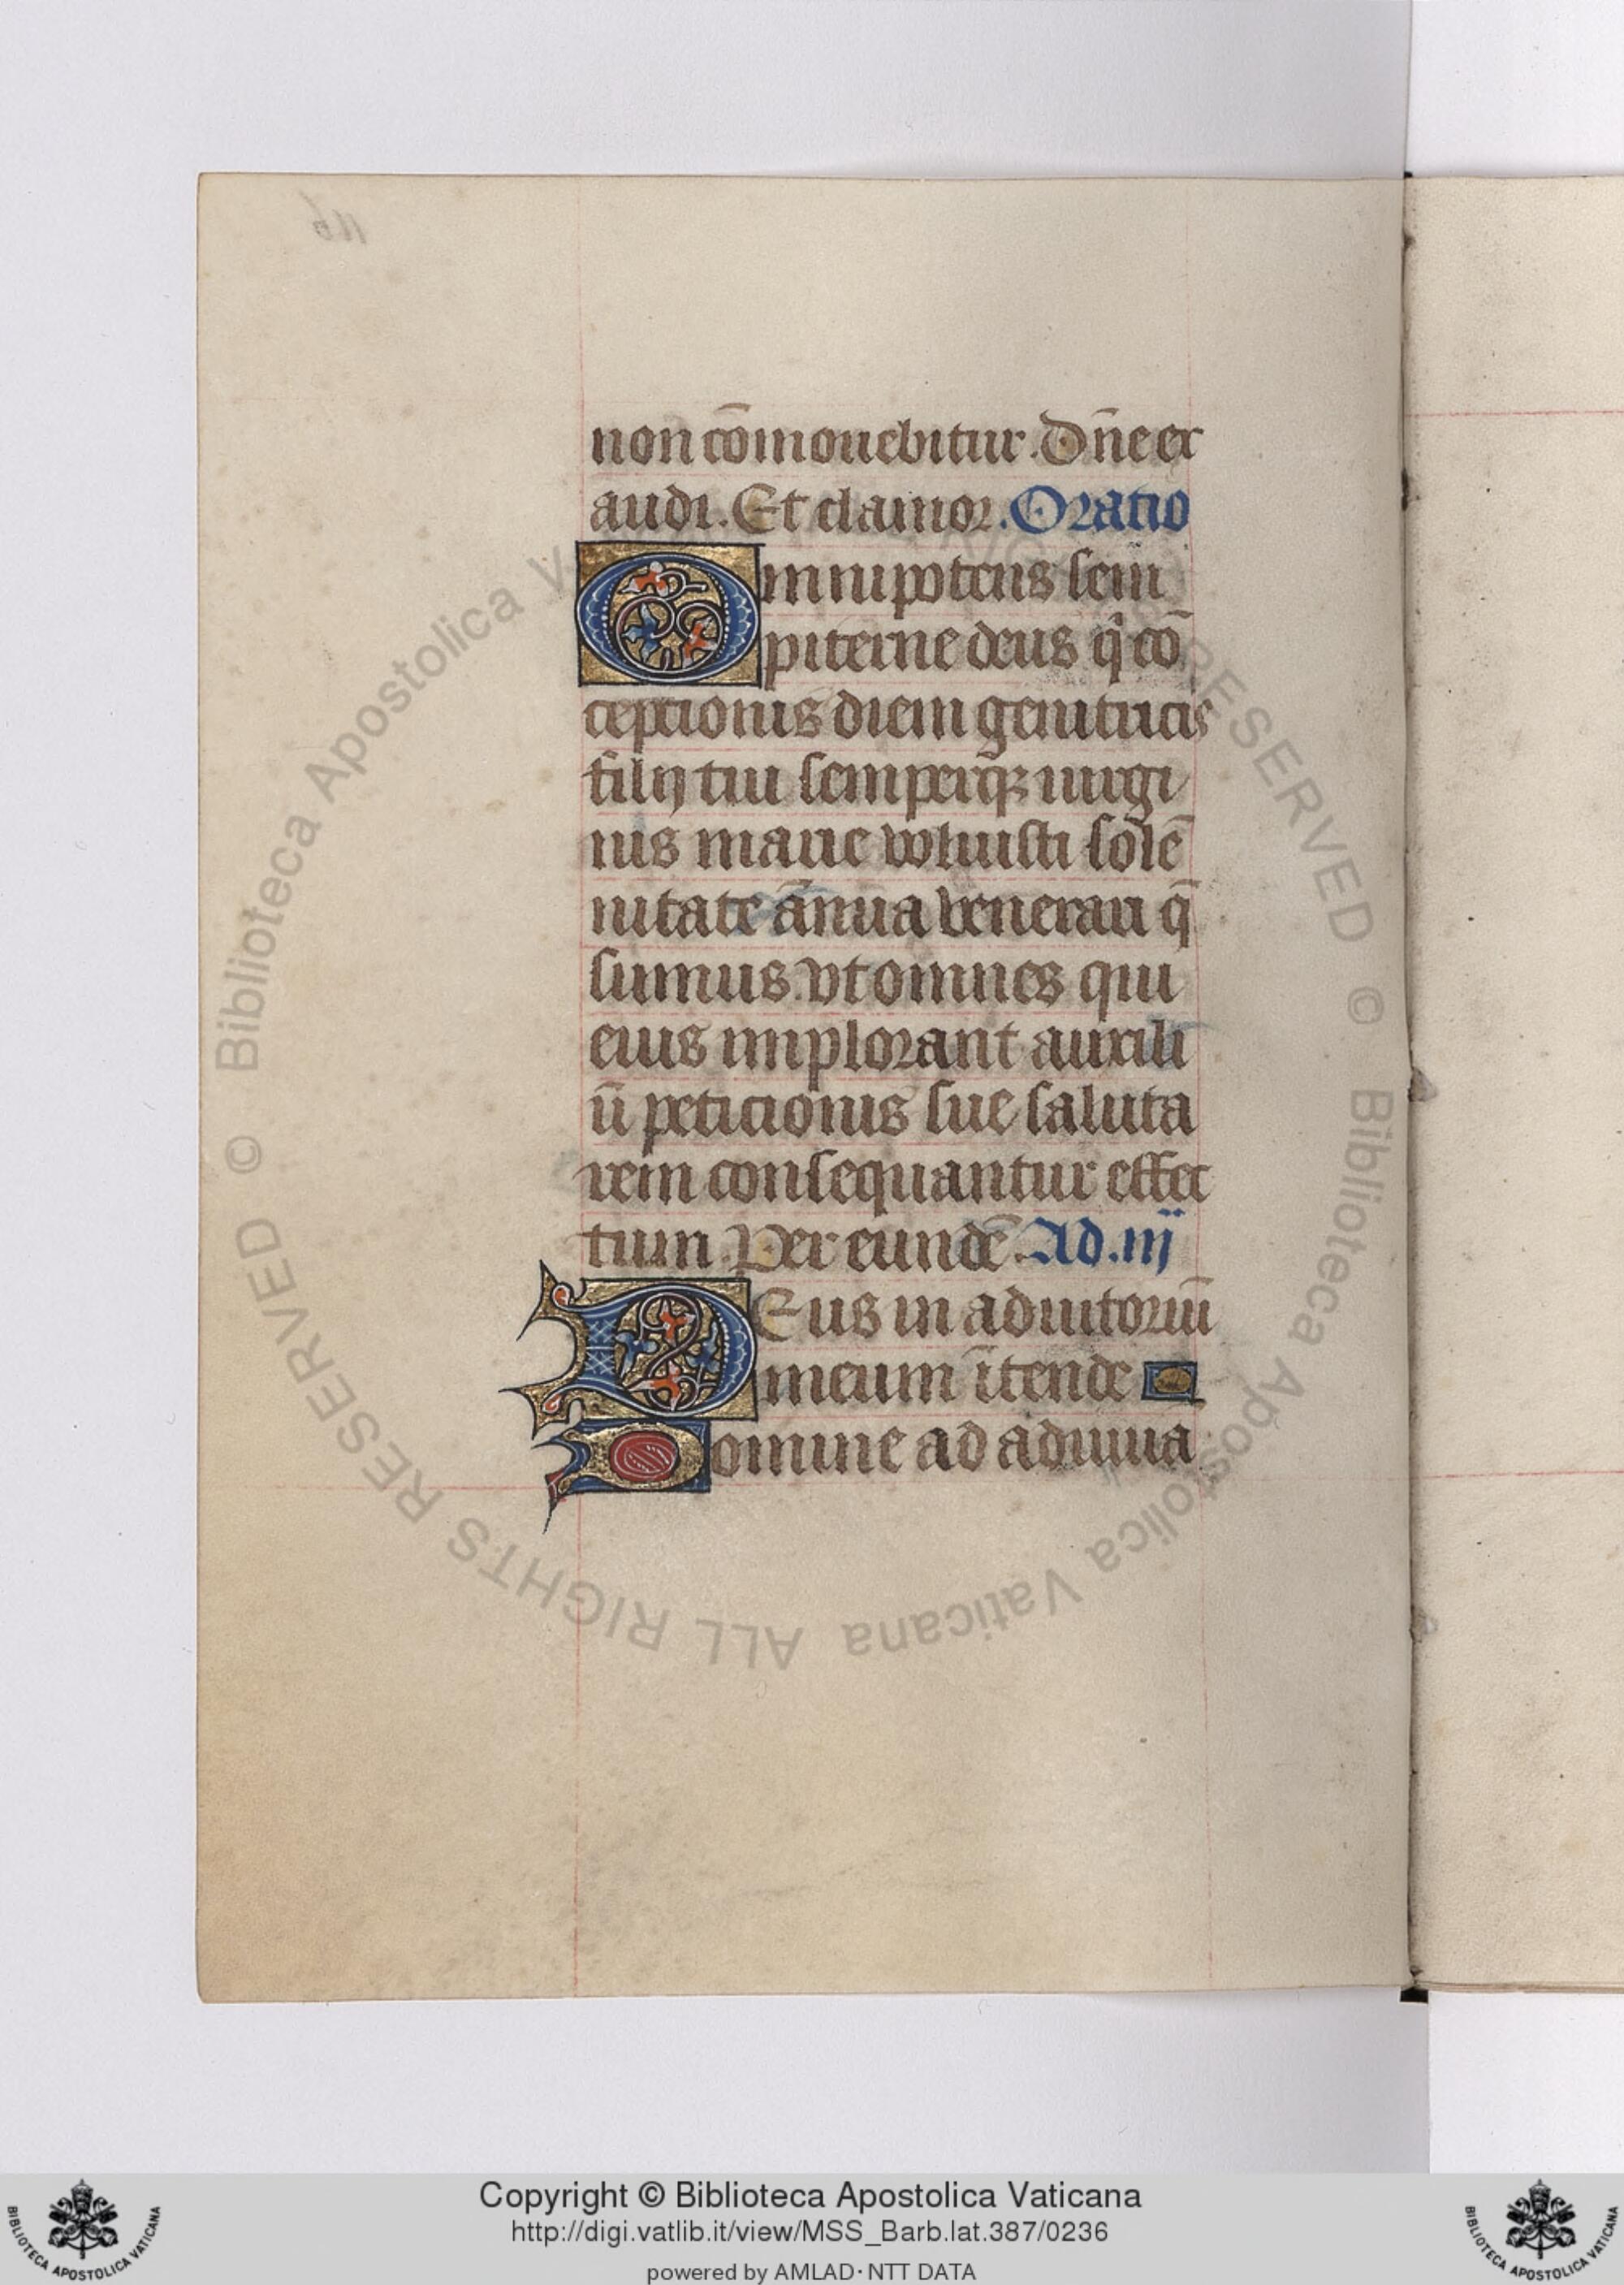 non cōmouebitur. Dn̄e ex
audi. Et clamor. Oratio
Omnipotens sem
piterne deus q̇ cō
ceptionis diem genitricis
filij tui semperqꝫ uirgi
nis marie voluisti solē
nitate ān̄ua venerari q̄
sumus. vt omnes qui
eius implorant auxili
ū peticionis sue saluta
rem consequantur effec
tum. Per eundē. Ad .iij
DEus in adiutoriū
meum ītende
Domine ad adiuua
116
© Biblioteca Apostolica Vaticana ALL RIGHTS RESERVED © Biblioteca Apostolica Vaticana ALL RIGHTS RESERVED
Copyright © Biblioteca Apostolica Vaticana
http://digi.vatlib.it/view/MSS_Barb.lat.387/0236
powered by AMLAD·NTT DATA
BIBLIOTECA APOSTOLICA VATICANA
BIBLIOTECA APOSTOLICA VATICANA